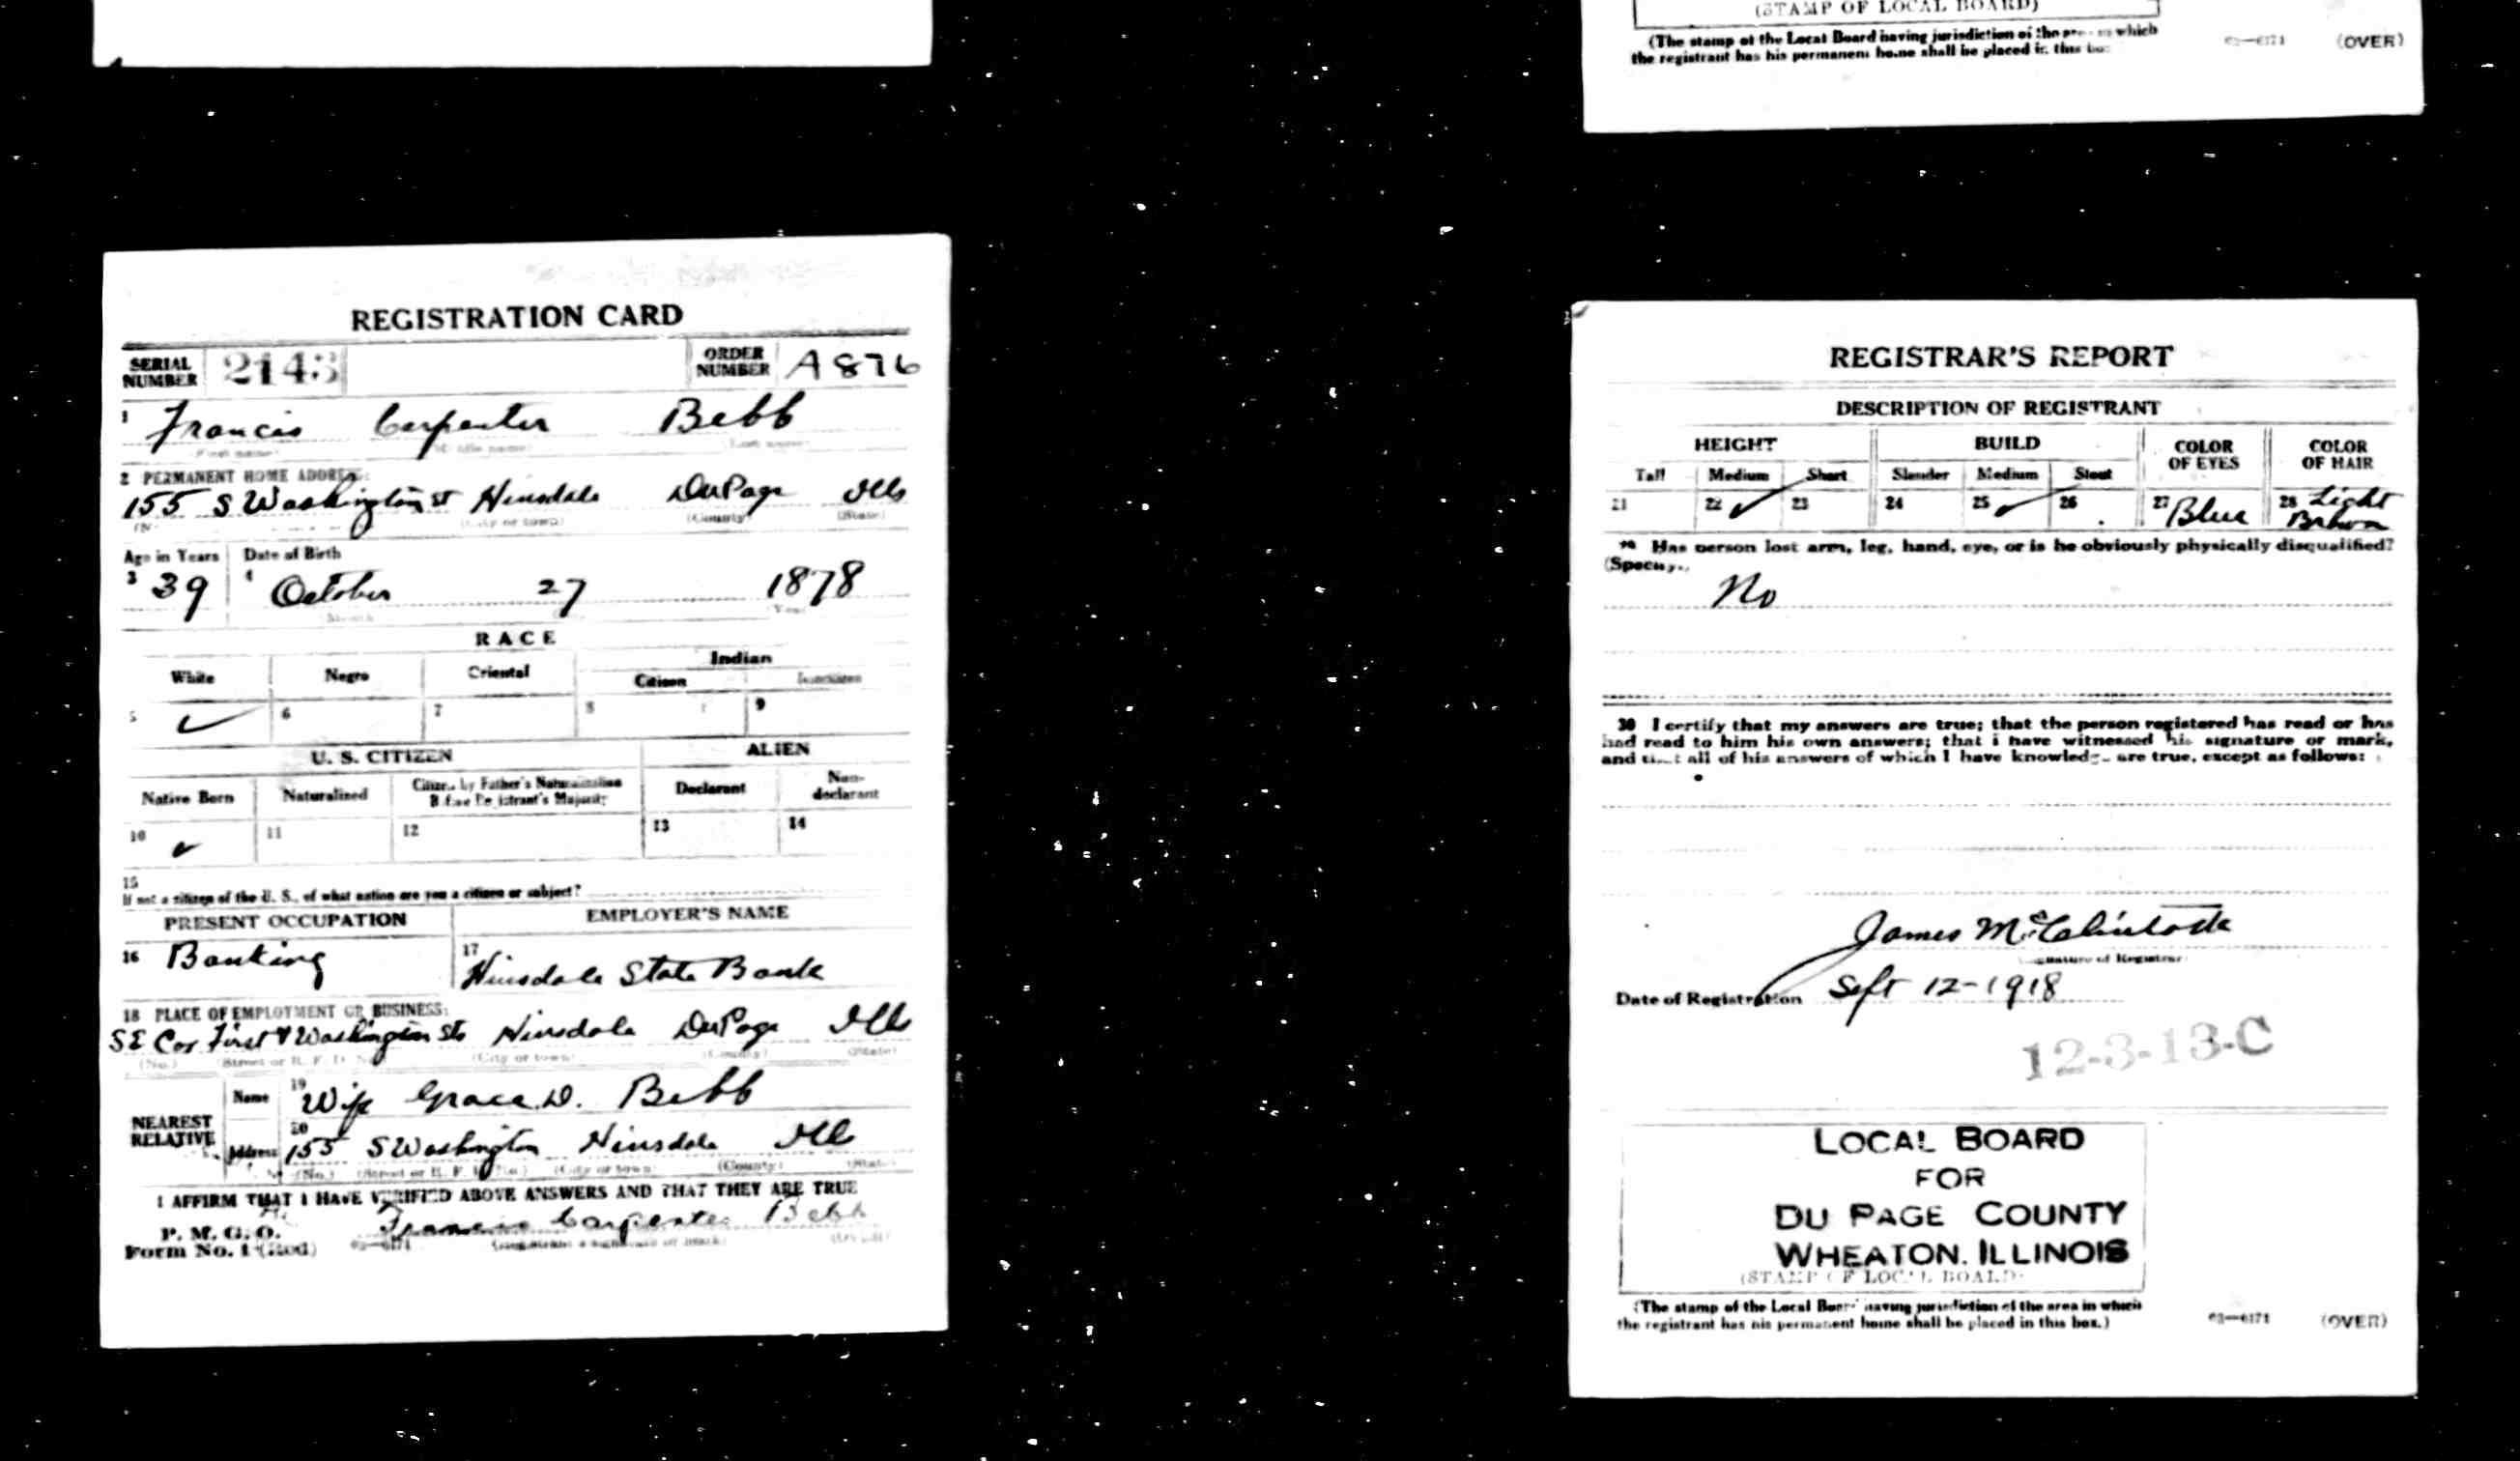 (STAMP OF LOCAL BOARD)
(The stamp of the Local Board having jurisdiction of the which
the registrant has his permanent home shall be placed in this
63—6171 (OVER)
REGISTRATION CARD
SERIAL NUMBER 2143 ORDER NUMBER A876
1 Francis Carpenter Bebb
(First name) (Middle name) (Last name)
2 PERMANENT HOME ADDRESS:
155 S Washington St Hinsdale DuPage Ills
(City or town) (County) (State)
Age in Years Date of Birth
3 39 4 October 27 1878
(Year)
RACE
White Negro Oriental Indian
Citizen Noncitizen
5 ✓ 6 7 8 9
U. S. CITIZEN ALIEN
Native Born Naturalized Citizen by Father's Naturalization Before Registrant's Majority Declarant Non-declarant
10 ✓ 11 12 13 14
15
If not a citizen of the U. S., of what nation are you a citizen or subject?
PRESENT OCCUPATION EMPLOYER'S NAME
16 Banking 17 Hinsdale State Bank
18 PLACE OF EMPLOYMENT OR BUSINESS:
SE Cor First & Washington Sts Hinsdale DuPage Ills
(No.) (Street or R. F. D. No.) (City or town) (County) (State)
NEAREST RELATIVE
Name 19 Wife Grace D. Bebb
Address 20 155 S Washington Hinsdale Ills
(No.) (Street or R. F. D. No.) (City or town) (County) (State)
I AFFIRM THAT I HAVE VERIFIED ABOVE ANSWERS AND THAT THEY ARE TRUE
P. M. G. O.
Form No. 1 (Red) 63—6171 Francis Carpenter Bebb
(Registrant's signature or mark)
REGISTRAR'S REPORT
DESCRIPTION OF REGISTRANT
HEIGHT BUILD COLOR OF EYES COLOR OF HAIR
Tall Medium Short Slender Medium Stout
21 22 ✓ 23 24 25 ✓ 26 27 Blue 28 Light Brown
29 Has person lost arm, leg, hand, eye, or is he obviously physically disqualified?
(Specify.)
No
30 I certify that my answers are true; that the person registered has read or has
had read to him his own answers; that I have witnessed his signature or mark,
and that all of his answers of which I have knowledge are true, except as follows:
James McClintock
(Signature of Registrar)
Date of Registration Sept 12-1918
12-3-13-C
LOCAL BOARD
FOR
DU PAGE COUNTY
WHEATON. ILLINOIS
(STAMP OF LOCAL BOARD)
(The stamp of the Local Board having jurisdiction of the area in which
the registrant has his permanent home shall be placed in this box.)
63—6171 (OVER)